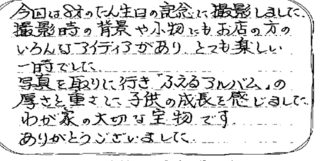 今回は8才のたん生日の記念に撮影しました。
撮影時の背景や小物にもお店の方の
いろんなアイディアがあり とても楽しい
一時でした。
写真を取りに行き「ふえるアルバム」の
厚さと重さに、子供の成長を感じました。
わが家の大切な宝物です。
ありがとうございました。